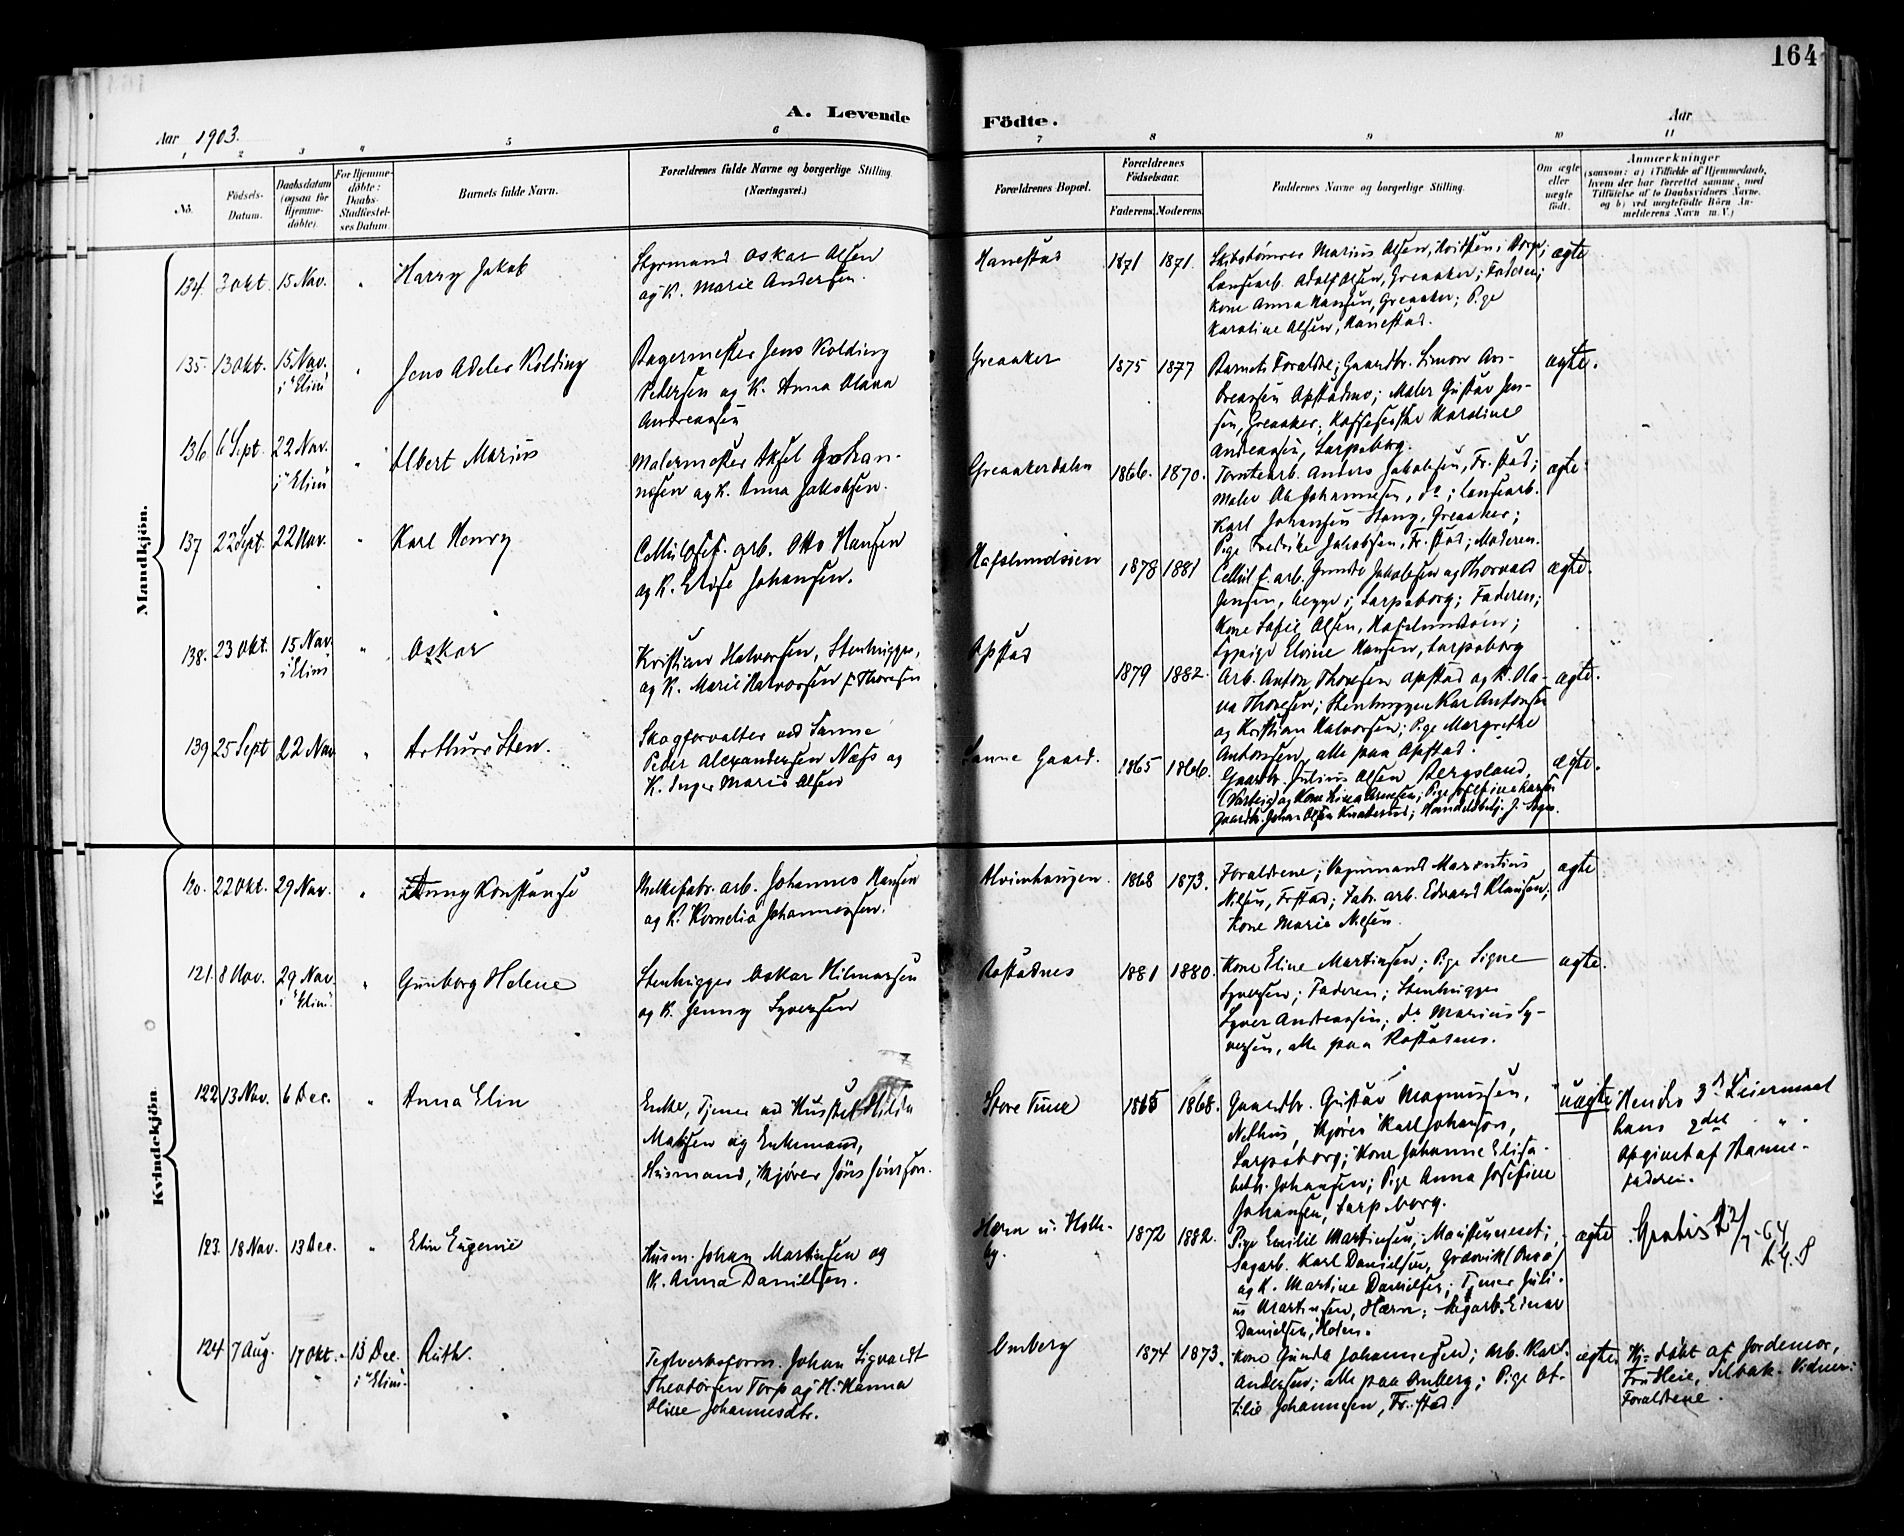 164
A. Levende Födte.
Aar 1903.
Aar
1 2 3 4 5 6 7 8 9 10 11
No.
Födsels-Datum.
Daabsdatum (ogsaa for Hjemme-döbte).
For Hjemme-döbte: Daabs-Stadfæstel-ses Datum.
Barnets fulde Navn.
Forældrenes fulde Navne og borgerlige Stilling. (Næringsvei.)
Forældrenes Bopæl.
Forældrenes Födselsaar.
Faderens. Moderens.
Faddernes Navne og borgerlige Stilling.
Om ægte eller uægte födt.
Anmærkninger
(saasom: a) i Tilfælde af Hjemmedaab, hvem der har forrettet samme, med Tilföielse af to Daabsvidners Navne, og b) ved uægtefödte Börn An-melderens Navn m. V.)
Mandkjön.
134. 3 Okt. 15 Nov. " Harry Jakob
Styrmand Oskar Olsen
og K. Marie Andersen.
Hanestad 1871 1871.
Skibstömrer Marius Olsen, Hvidsten i Borge;
Lænsearb. Adolf Olsen, Greaaker; Faderen;
Kone Anna Hansen, Greaaker; Pige
Karoline Olsen, Hanestad.
ægte
135. 13 Okt. 15 Nov. i "Elim" " Jens Adeler Kolding
Bagermester Jens Kolding
Pedersen og K. Anna Olava
Andreassen
Greaaker 1875 1877
Barnets Foraldre; Gaardbr. Simon An-
dreassen Opstadmo; Maler Gustav Jen-
sen, Greaaker; Kaffevertske Kardine
Andreassen, Sarpsborg.
ægte.
136 6 Sept 22 Nov. i "Elim" " Albert Marius
Malermester Aksel Johan-
nesen og K. Anna Jakobsen.
Greaakerdalen 1866. 1870.
Tomtearb. Anders Jakobsen, Fr.stad;
Maler Ole Johannesen, do; Lænsearb.
Karl Johansen Stang, Greaaker;
Pige Fredrikke Jakobsen, Fr.stad; Moderen.
ægte.
137 22 Sept. 22 Nov. " Karl Henry
Cellulosef. arb. Otto Hansen
og K. Elise Johansen.
Hafslundsöen 1878 1881
Cellul f. arb. Gunde Jakobsen og Thorvald
Jensen, begge i Sarpsborg; Faderen;
Kone Sofie Olsen, Hafslundsöen;
Sypige Elvine Hansen, Sarpsborg
ægte.
138. 23 Okt. 15 Nov. i "Elim" " Oskar
Kristian Halvorsen, Stenhugger,
og K. Marie Halvorsen f. Thoresen
Opstad 1879 1882.
Arb. Anton Thoresen Opstad og K. Ola-
va Thoresen; Stenhugger Kar Antonsen
og Kristian Halvorsen; Pige Margrethe
Antonsen, alle paa Opstad.
ægte.
139 25 Sept 22 Nov " Arthur Sten.
Skogforvalter ved Sanne
Peder Alexandersen Næss og
K. Inger Marie Olsen
Sanne Gaard. 1865 1866.
Gaardbr. Julius Olsen Bergsland,
(Varteig) og Kone Lina Arnesen; Pige Josefine Karlsen
Gaardbr. Johan Olsen Knatterud; Handelsbetj.
ægte.
Kvindekjön
120. 22 Okt. 29 Nov. " Anny Konstanse
Melkefabr. arb. Johannes Hansen
og K. Kornelia Johannessen.
Alvimhaugen. 1868 1873.
Foraldrene; Vognmand Marentius
Nilsen, Frstad; Fabr. arb. Edvard Klausen;
Kone Marie Nilsen.
ægte
121. 8 Nov. 29 Nov. i "Elim" " Gunborg Helene
Stenhugger Oskar Hilmarsen
og K. Jenny Syversen
Rostadnes 1881 1880.
Kone Eline Martinsen; Pige Signe
Syversen; Faderen; Stenhugger
Syver Andreassen; do Marius Sy-
versen, alle paa Rostadnes.
ægte.
122 13 Nov. 6 Dec. " Anna Elin
Enke, Tjener ved Huset Hilda
Matsen og Enkemand,
Husmand, Kjörer Jöns Jönsson.
Store Tune 1865 1868.
Gaardbr. Gustav Magnussen,
Nethus, Kjörer Karl Johanson,
Sarpsborg; Kone Johanne Elisa-
beth Johansen; Pige Anna Josefine
Johansen, Sarpsborg.
uægte
Hendes 3d Leiermaal
hans 2det " "
Opgivet af Barne-
faderen.
123. 18 Nov. 13 Dec. " Elin Eugenie
Husm. Johan Martinsen og
K. Anna Danielsen.
Hærn u. Holle-
by. 1872 1882.
Pige Emilie Martinsen,
Sagarb. Karl Danielsen,
og K. Martine Danielsen; Tjener Juli-
us Martinsen, Hærn; Sagarb. Einar
Danielsen, Holen.
ægte
Gratis 22/7-64
124 7 Aug. 17 Okt. 13 Dec. i "Elim". Ruth.
Teglverksform. Johan Sigvardt
Theodorsen Torp og K. Hanna
Oline Johannesdtr.
Omberg 1874 1873.
Kone Gunda Johannesen; Arb. Karl
Andersen; alle paa Omberg; Pige Ot-
tilie Johannesen, Fr.stad.
ægte
Hj- döbt af Jordemor,
Fru Heie, Selbak. Vidner:
Foraldrene.